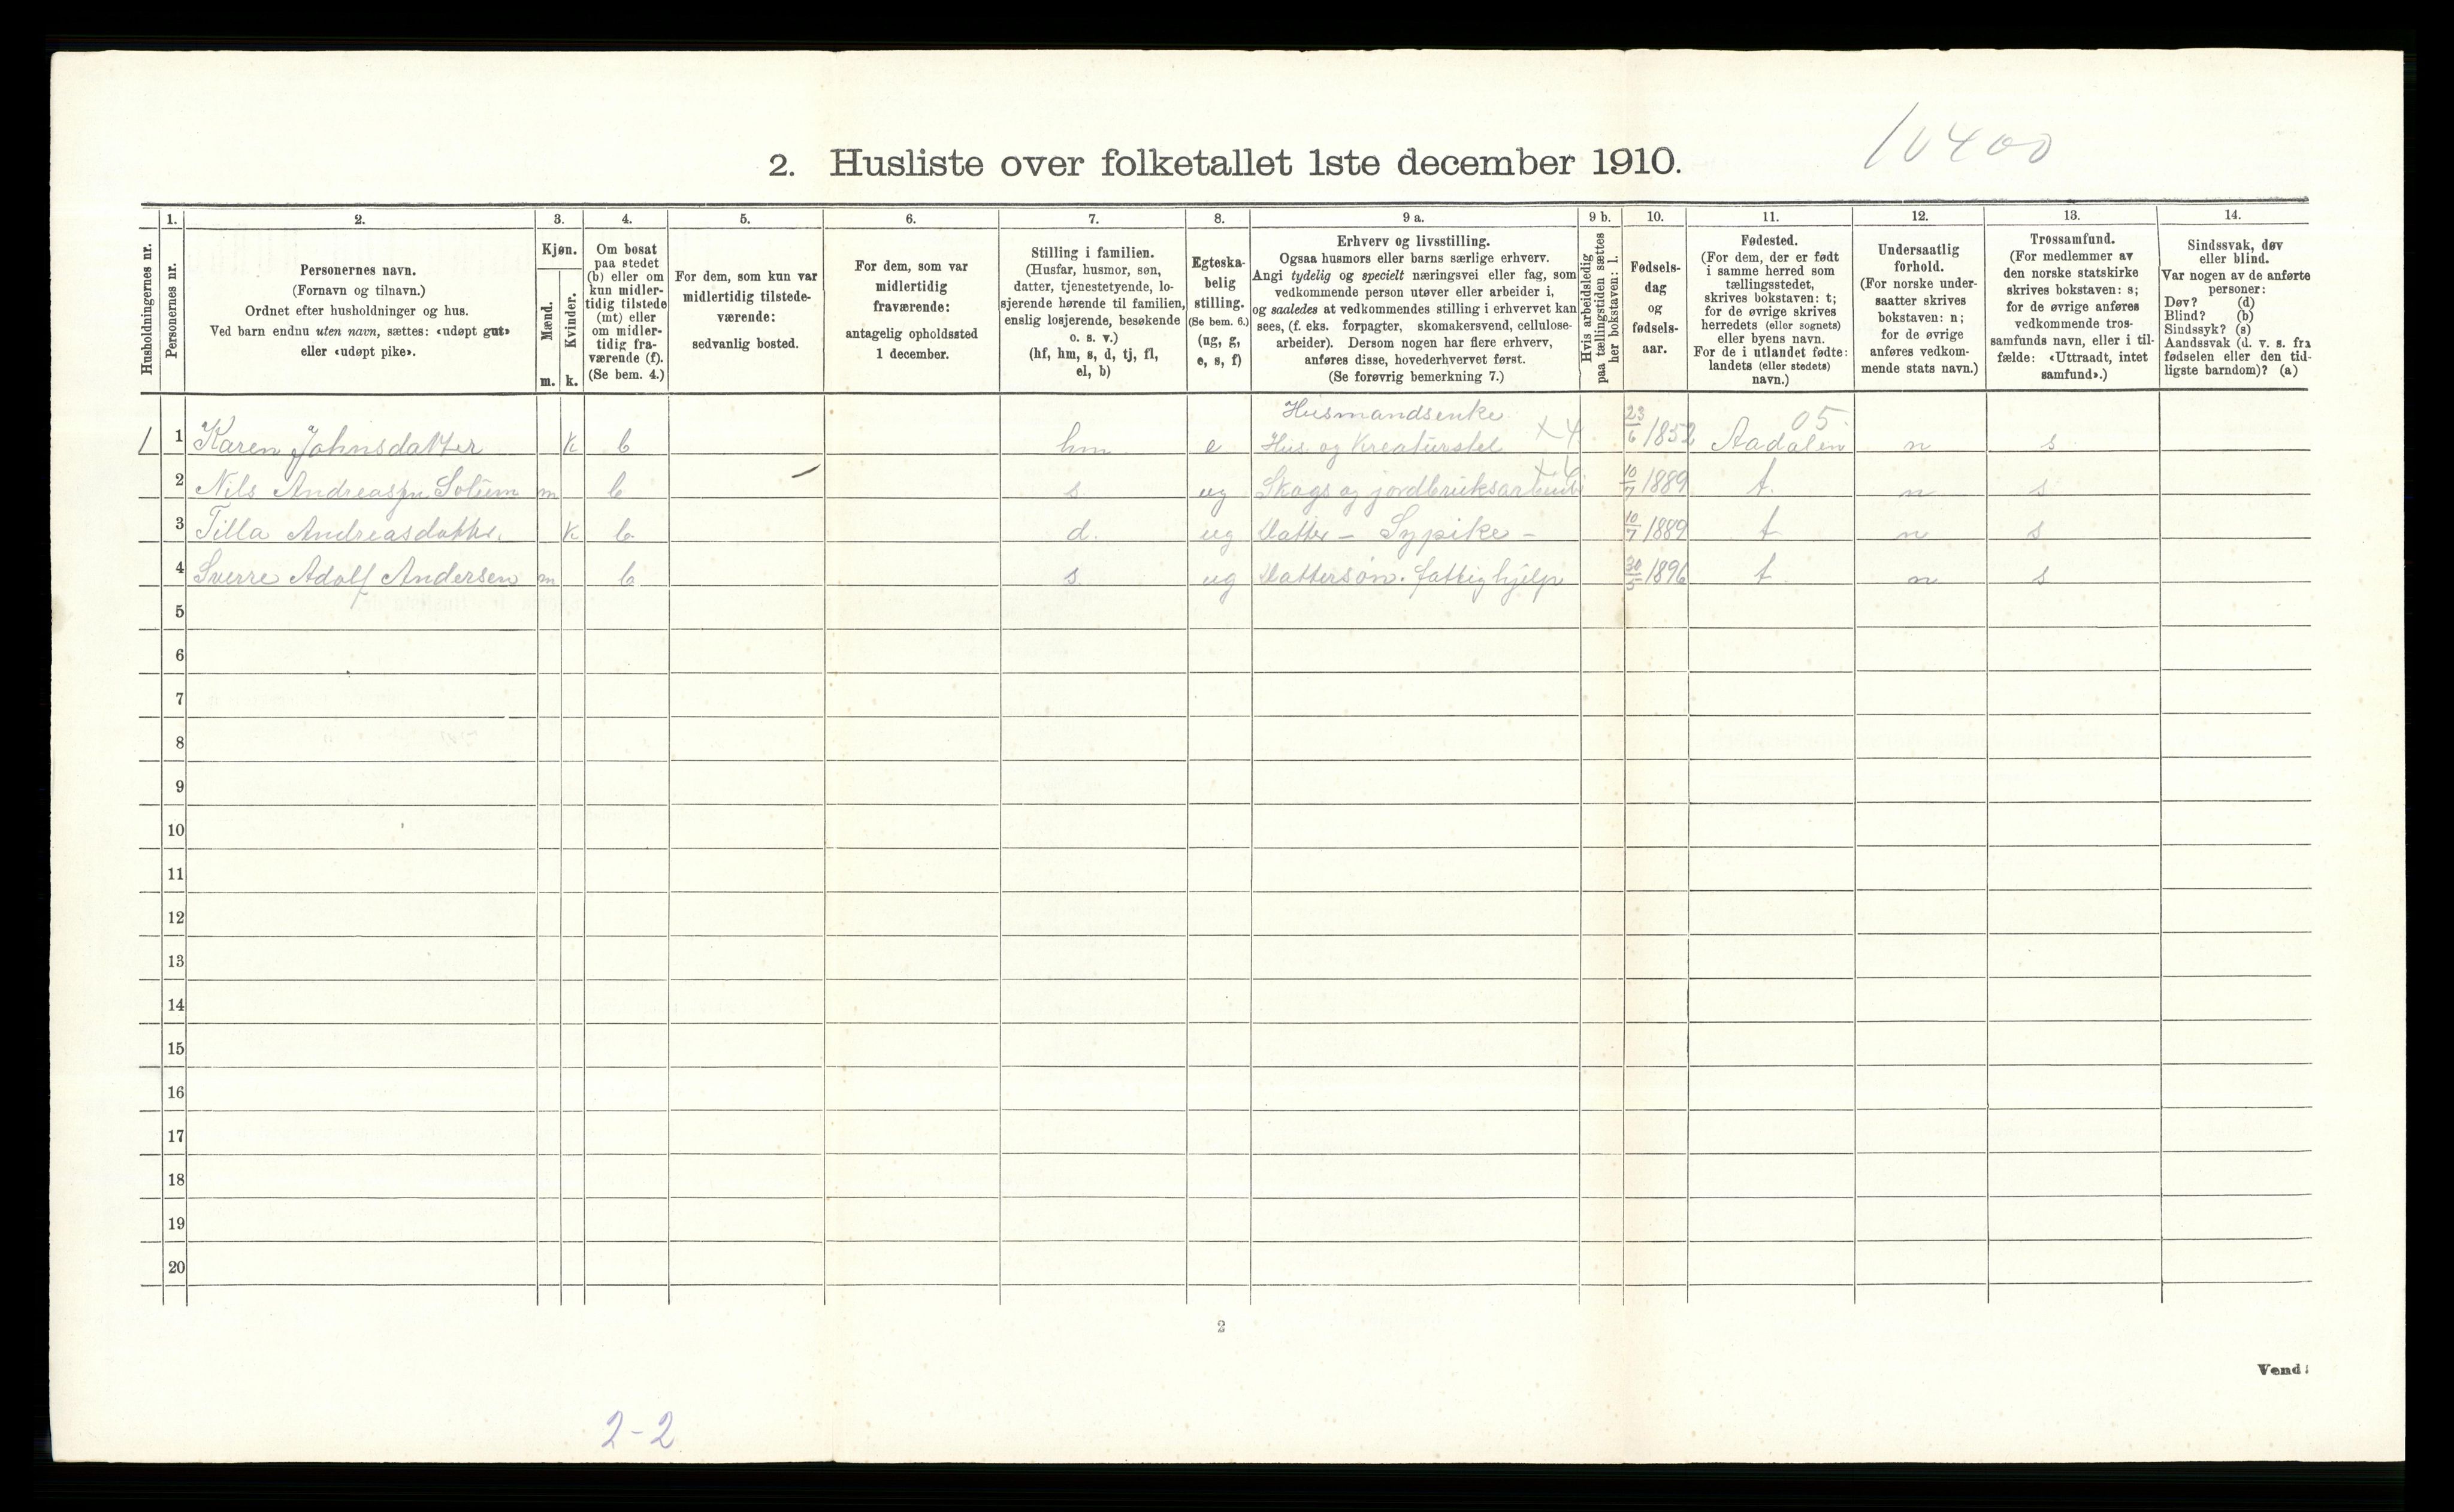 10400
2. Husliste over folketallet 1ste december 1910.
Husholdningernes nr.
1.
Personernes nr.
2.
Personernes navn.
(Fornavn og tilnavn.)
Ordnet efter husholdninger og hus.
Ved barn endnu uten navn, sættes: «udøpt gut»
eller «udøpt pike».
3.
Kjøn.
Mænd.
Kvinder.
m. k.
4.
Om bosat
paa stedet
(b) eller om
kun midler-
tidig tilstede
(mt) eller
om midler-
tidig fra-
værende (f).
(Se bem. 4.)
5.
For dem, som kun var
midlertidig tilstede-
værende:
sedvanlig bosted.
6.
For dem, som var
midlertidig
fraværende:
antagelig opholdssted
1 december.
7.
Stilling i familien.
(Husfar, husmor, søn,
datter, tjenestetyende, lo-
sjerende hørende til familien,
enslig losjerende, besøkende
o. s. v.)
(hf, hm, s, d, tj, fl,
el, b)
8.
Egteska-
belig
stilling.
(Se bem. 6.)
(ug, g,
e, s, f)
9 a.
Erhverv og livsstilling.
Ogsaa husmors eller barns særlige erhverv.
Angi tydelig og specielt næringsvei eller fag, som
vedkommende person utøver eller arbeider i,
og saaledes at vedkommendes stilling i erhvervet kan
sees, (f. eks. forpagter, skomakersvend, cellulose-
arbeider). Dersom nogen har flere erhverv,
anføres disse, hovederhvervet først.
(Se forøvrig bemerkning 7.)
9 b.
Hvis arbeidsledig
paa tællingstiden sættes
her bokstaven: l.
10.
Fødsels-
dag
og
fødsels-
aar.
11.
Fødested.
(For dem, der er født
i samme herred som
tællingsstedet,
skrives bokstaven: t;
for de øvrige skrives
herredets (eller sognets)
eller byens navn.
For de i utlandet fødte:
landets (eller stedets)
navn.)
12.
Undersaatlig
forhold.
(For norske under-
saatter skrives
bokstaven: n;
for de øvrige
anføres vedkom-
mende stats navn.)
13.
Trossamfund.
(For medlemmer av
den norske statskirke
skrives bokstaven: s;
for de øvrige anføres
vedkommende tros-
samfunds navn, eller i til-
fælde: «Uttraadt, intet
samfund».)
14.
Sindssvak, døv
eller blind.
Var nogen av de anførte
personer:
Døv? (d)
Blind? (b)
Sindssyk? (s)
Aandssvak (d. v. s. fra
fødselen eller den tid-
ligste barndom)? (a)
Husmandsenke 05.
1 1 Karen Johnsdatter k b hm e Hus og Kreaturstel x4 23/6 1852 Aadalen n s
2 Nils Andreassn Solum m b s. ug Skogs og jordbruksarbeide 10/7 1889 t. n s
3 Tilla Andreasdatter. k b. d. ug Datter - Sypike - 10/7 1889 t n s
4 Sverre Adolf Andersen m b s. ug Dattersøn. fattighjelp 30/5 1896 t n s
5
6
7
8
9
10
11
12
13
14
15
16
17
18
19
20
2
Vend!
2-2